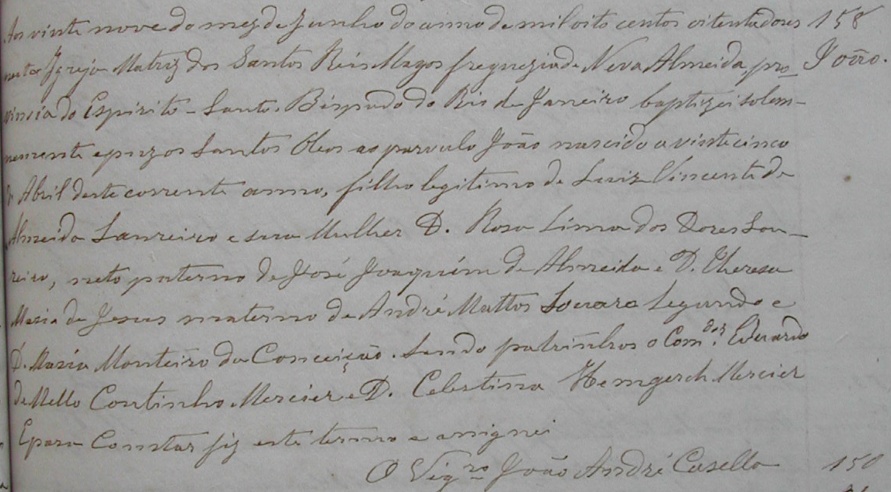 Aos vinte nove do mez de Junho do anno de mil oito centos oitenta dous 158
nesta Igreja Matriz dos Santos Reis Magos freguezia de Nova Almeida pro- João.
vincia do Espirito-Santo Bispado do Rio de Janeiro baptizei solem-
nemente e puz os Santos Oleos ao parvulo João nascido a vinte cinco
de Abril deste corrente anno, filho legitimo de Luiz Vincente de
Almeida Loureiro e sua Mulher D. Rosa Lima das Dores Lou-
reiro, neto paterno de José Joaquim de Almeida e D. Theresa
Maria de Jesus materno de André Mattos Segundo e
D. Maria Monteiro da Conceição. Sendo padrinhos o Com.dor Eduardo
de Mello Coutinho Mercier e D. Celestina Mercier
E para Constar fiz este termo e assignei
O Vigro João André Casella 150